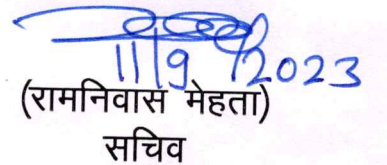 11/9/2023
(रामनिवास मेहता)
सचिव